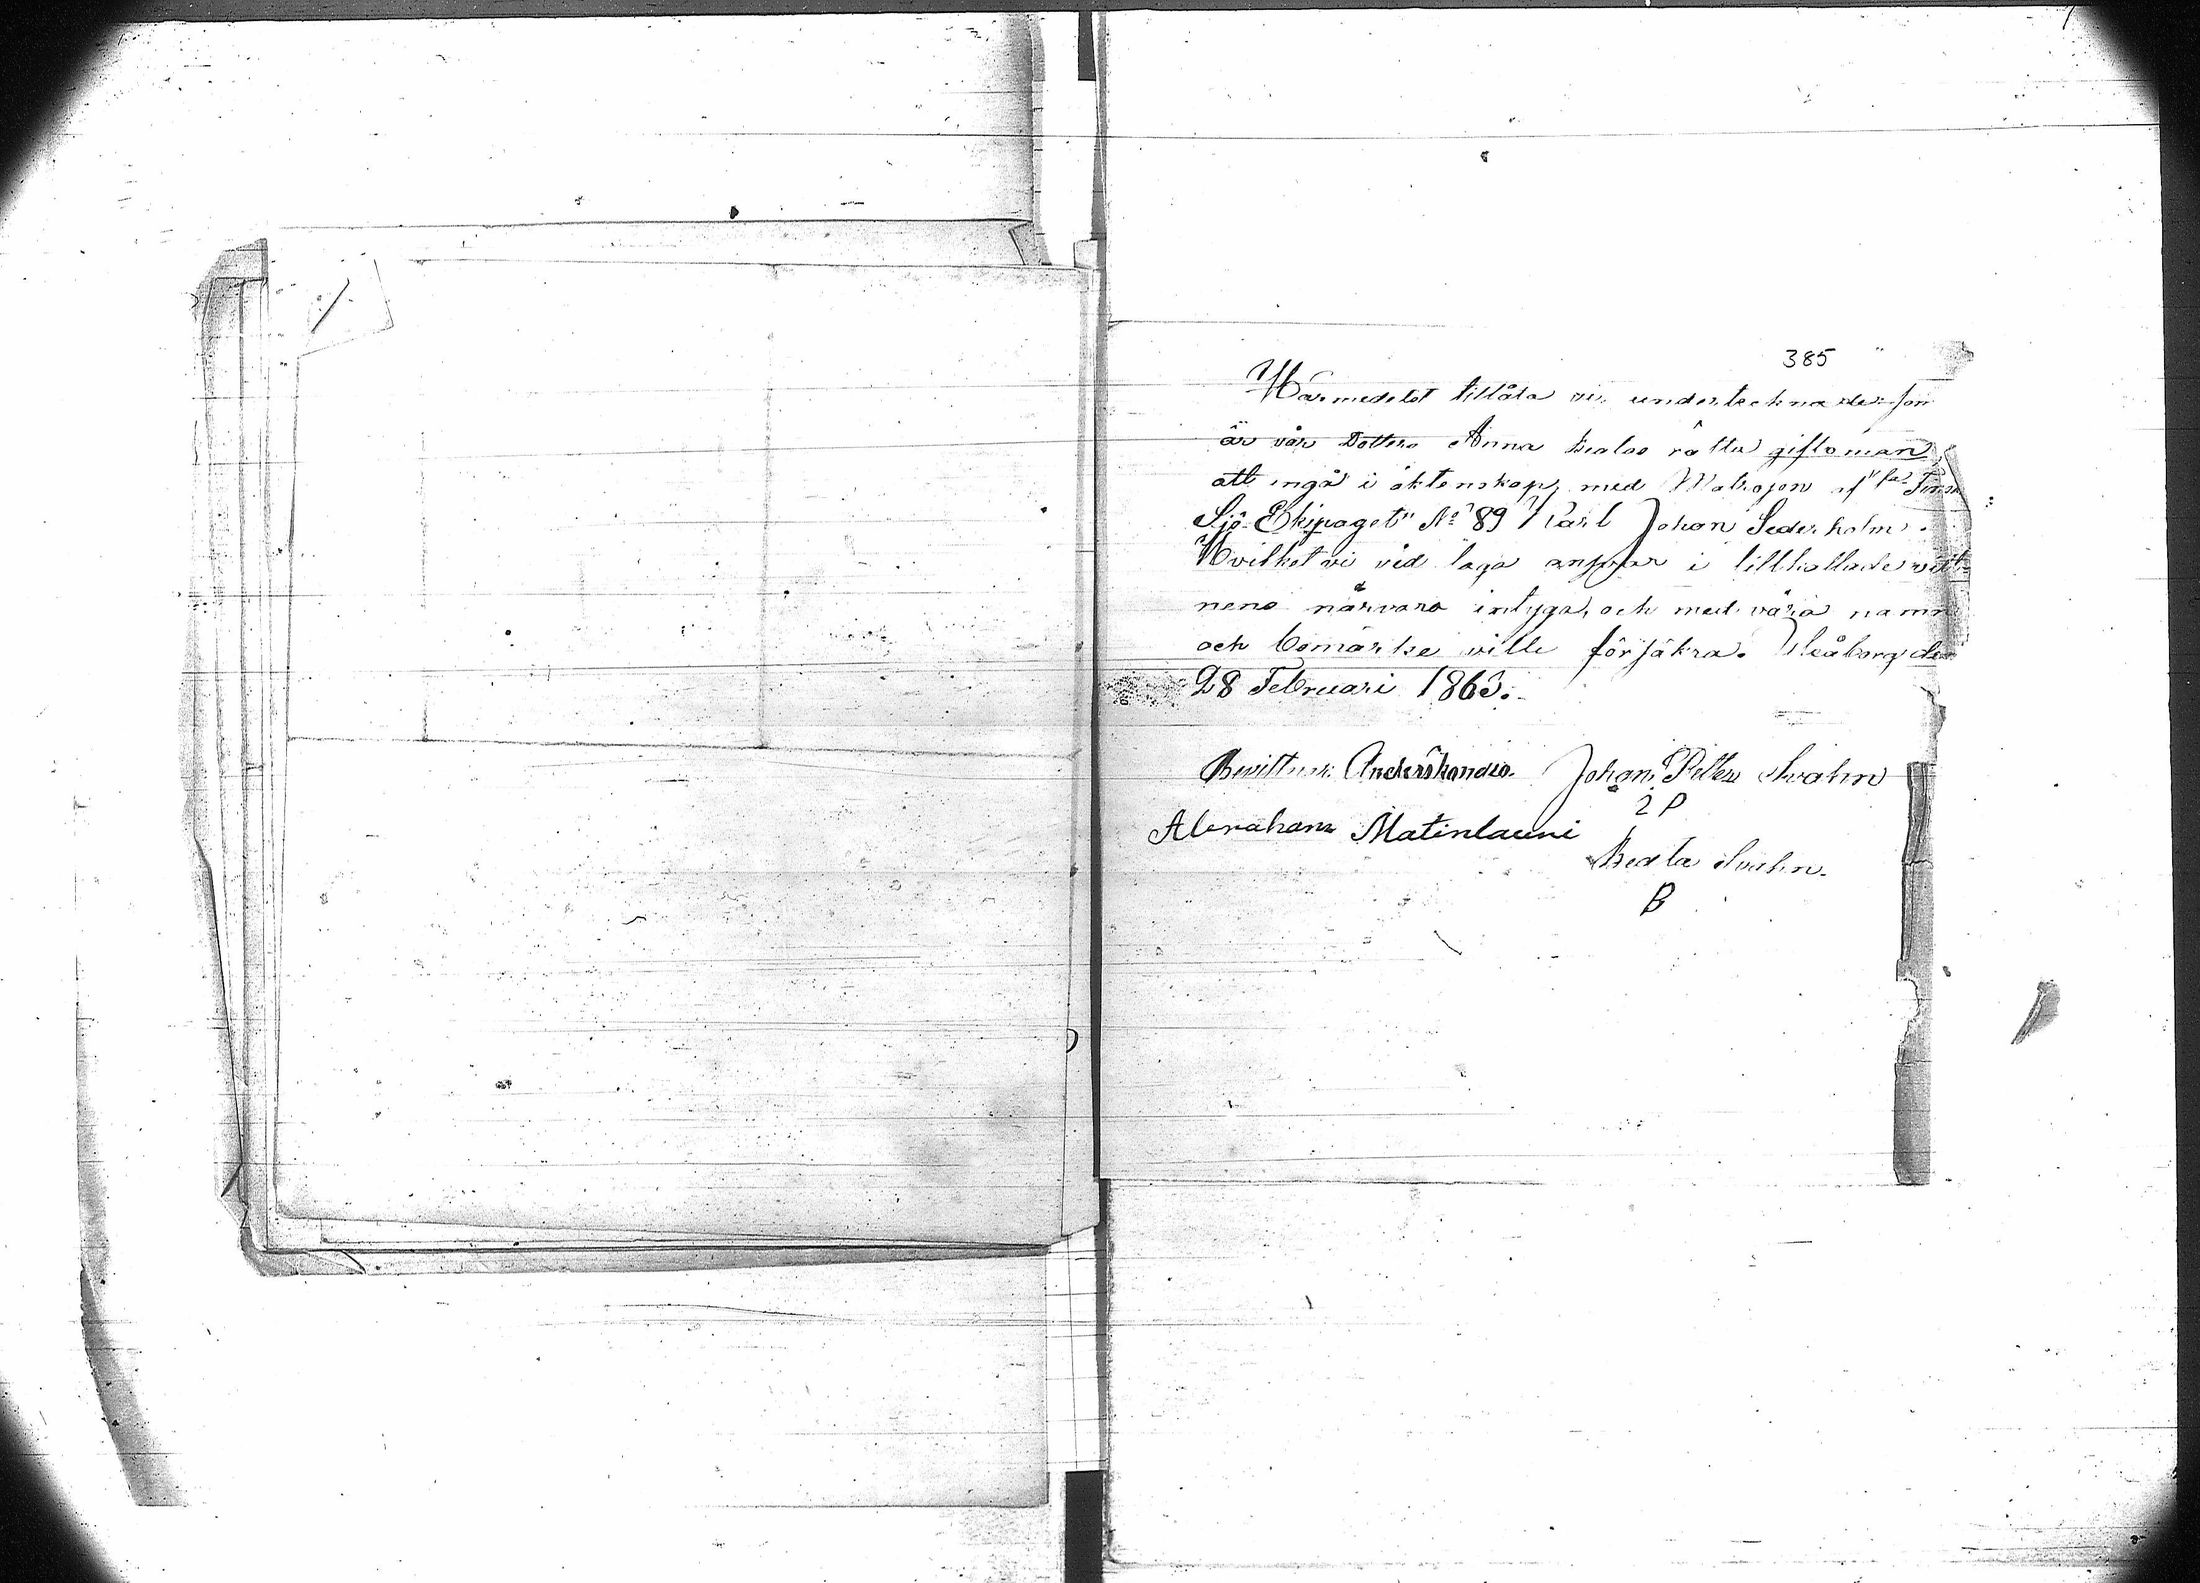 385
Härmedelst tillåta vi undertecknade som
är vår Dotters Anna Beatas rätta giftoman,
att ingå i äktenskap, med Matrosen af "1sta Finska
Sjö-Ekipaget" No 89 Karl Johan Sederholm.
Hvilket vi vid laga ansvar i tillkallade vitt-
nens närvaro intyga, och med våra namn
och bomärke ville försäkra. Uleåborg den
28 Februari 1863.
Bevittnar: Johan Petter Svahn
2 P
Abraham Matinlauri
Beata Svahn.
B